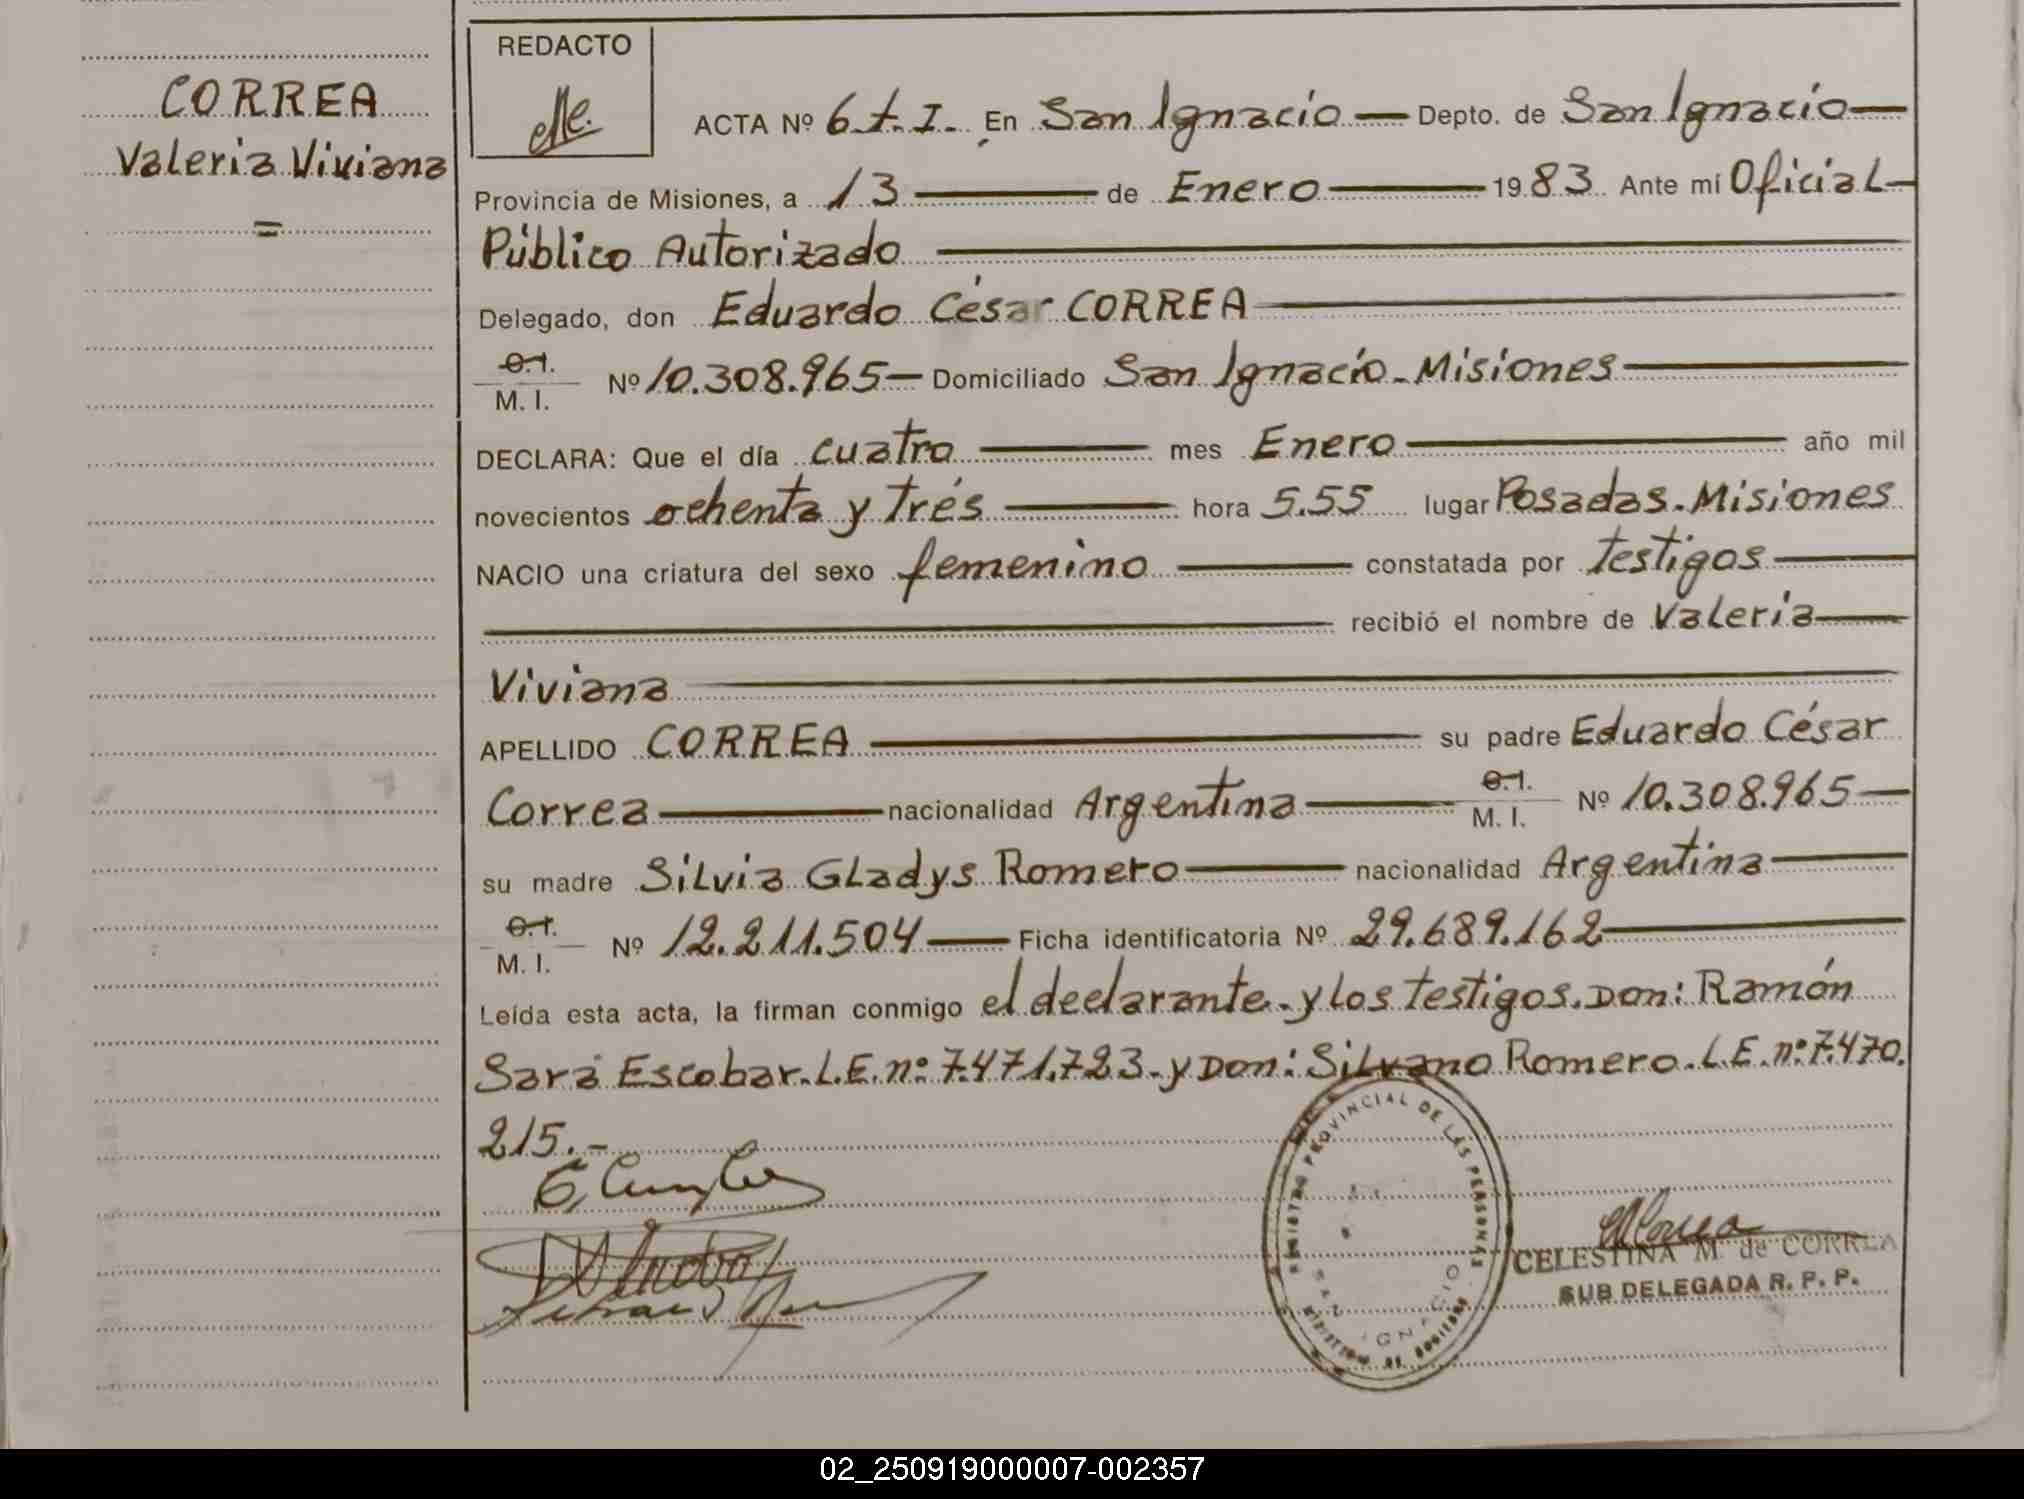 CORREA
Valeria Viviana
=
REDACTO
ACTA Nº 6 t. I. En San Ignacio — Depto. de San Ignacio —
Provincia de Misiones, a 13 — de Enero — 1983 Ante mí Oficial —
Público Autorizado —
Delegado, don Eduardo César CORREA —
C.I.
M. I. Nº 10.308.965 — Domiciliado San Ignacio - Misiones —
DECLARA: Que el día cuatro — mes Enero — año mil
novecientos ochenta y trés — hora 5.55 lugar Posadas - Misiones
NACIO una criatura del sexo femenino — constatada por testigos —
— recibió el nombre de Valeria —
Viviana —
APELLIDO CORREA — su padre Eduardo César
Correa — nacionalidad Argentina — C.I. M. I. Nº 10.308.965 —
su madre Silvia Gladys Romero — nacionalidad Argentina —
C.I.
M. I. Nº 12.211.504 — Ficha identificatoria Nº 29.689.162 —
Leída esta acta, la firman conmigo el declarante - y los testigos. Don: Ramón
Sara Escobar. L.E. nº: 7.471.723 - y Don: Silvano Romero. L.E. nº: 7.470.
215.-
REGISTRO PROVINCIAL DE LAS PERSONAS
SAN IGNACIO
MINISTERIO DE GOBIERNO
CELESTINA M de CORREA
SUB DELEGADA R. P. P.
02_250919000007-002357